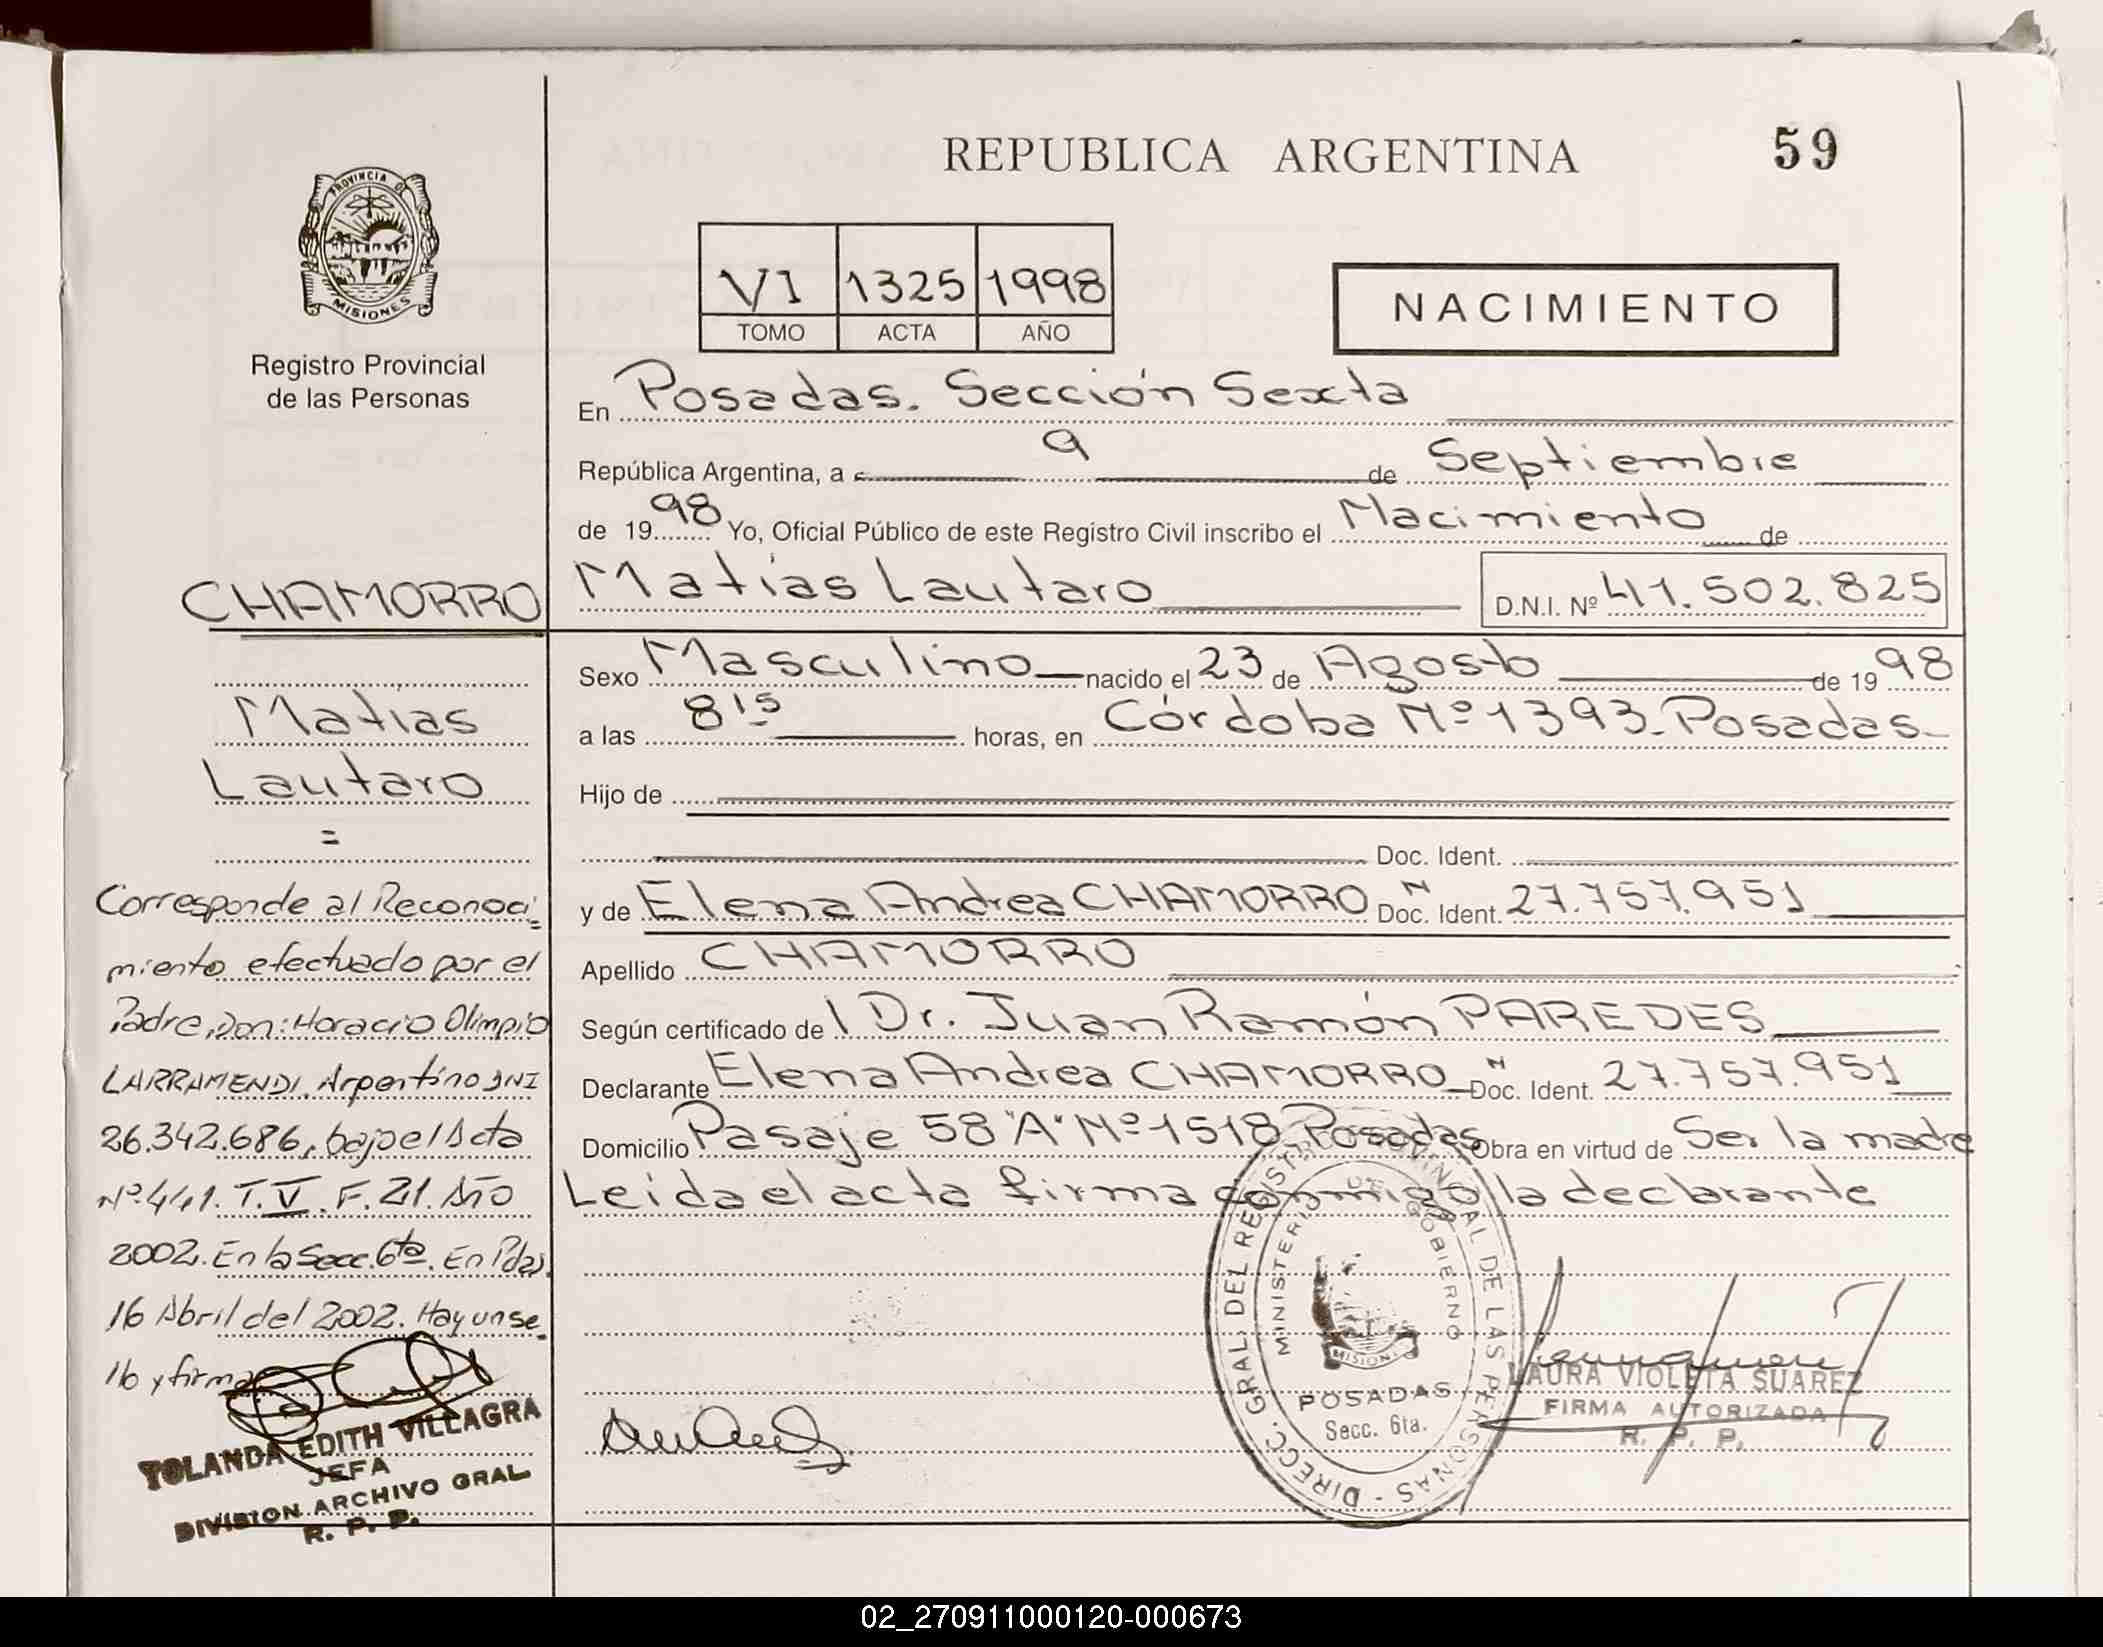 REPUBLICA ARGENTINA
59
PROVINCIA DE
MISIONES
Registro Provincial
de las Personas
VI 1325 1998
TOMO ACTA AÑO
NACIMIENTO
En Posadas. Sección Sexta
República Argentina, a 9 de Septiembre
de 1998 Yo, Oficial Público de este Registro Civil inscribo el Nacimiento de
Matías Lautaro D.N.I. Nº 41.502.825
Sexo Masculino nacido el 23 de Agosto de 1998
a las 8 15 horas, en Córdoba Nº 1393. Posadas
Hijo de
Doc. Ident.
y de Elena Andrea CHAMORRO Doc. Ident. N 27.757.951
Apellido CHAMORRO
Según certificado del Dr. Juan Ramón PAREDES
Declarante Elena Andrea CHAMORRO Doc. Ident. N 27.757.951
Domicilio Pasaje 58 "A" Nº 1518 Posadas Obra en virtud de Ser la madre
Leida el acta firma conmigo la declarante
CHAMORRO
Matías
Lautaro
=
Corresponde al Reconoci-
miento efectuado por el
Padre, Don: Horacio Olimpio
LARRAMENDI. Argentino DNI
26.342.686, bajo el Acta
Nº 441. T. V. F. 21. Año
2002. En la Secc. 6ta. En Pdas.
16 Abril del 2002. Hay un se-
llo y firma
YOLANDA EDITH VILLAGRA
JEFA
DIVISION ARCHIVO GRAL.
R. P. P.
DIRECC. GRAL. DEL REGISTRO PROVINCIAL DE LAS PERSONAS -
MINISTERIO DE GOBIERNO
MISIONES
POSADAS
Secc. 6ta.
LAURA VIOLETA SUAREZ
FIRMA AUTORIZADA
R. P. P.
02_270911000120-000673